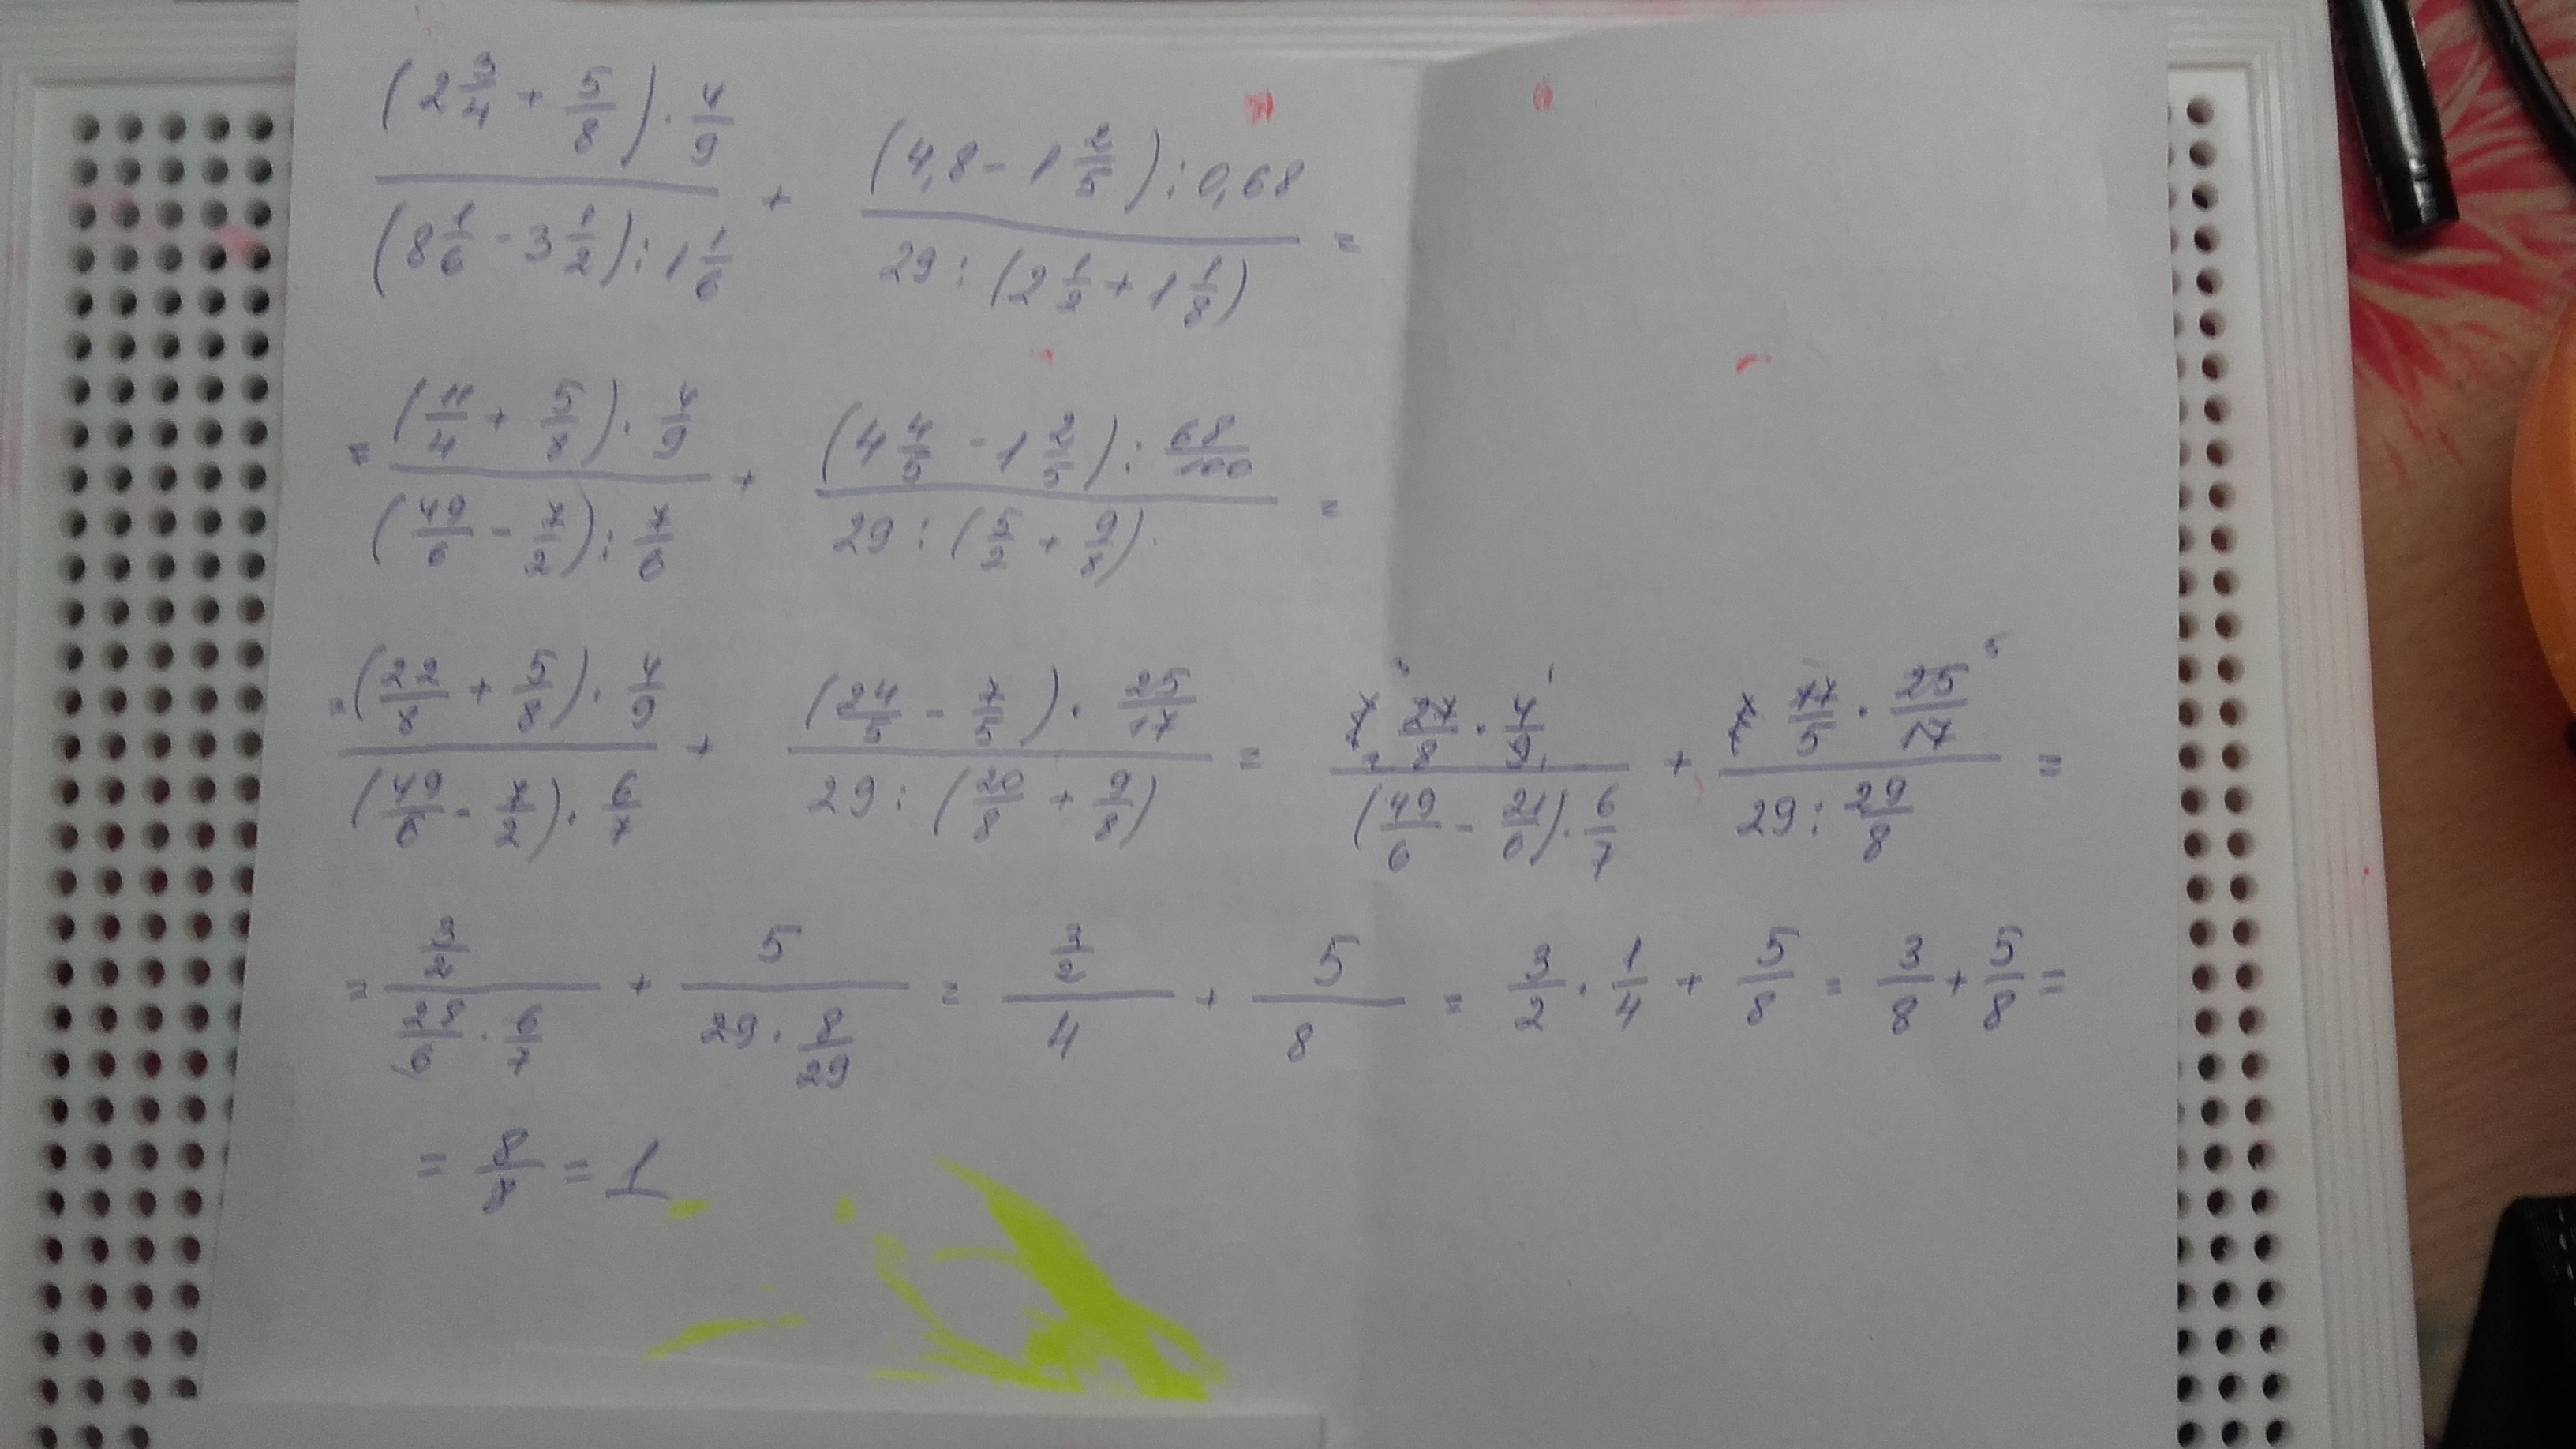 (2 3/4 + 5/8) · 4/9 / (8 1/6 - 3 1/2) : 1 1/6 + (4,8 - 1 2/5) : 0,68 / 29 : (2 1/2 + 1 1/8) =
= (11/4 + 5/8) · 4/9 / (49/6 - 7/2) : 7/6 + (4 4/5 - 1 2/5) : 68/100 / 29 : (5/2 + 9/8) =
= (22/8 + 5/8) · 4/9 / (49/6 - 7/2) · 6/7 + (24/5 - 7/5) · 25/17 / 29 : (20/8 + 9/8) = 27/8 · 4/9 / (49/6 - 21/6) · 6/7 + 17/5 · 25/17 / 29 : 29/8 =
= 3/2 / 28/6 · 6/7 + 5 / 29 · 8/29 = 3/2 / 4 + 5/8 = 3/2 · 1/4 + 5/8 = 3/8 + 5/8 =
= 8/8 = 1